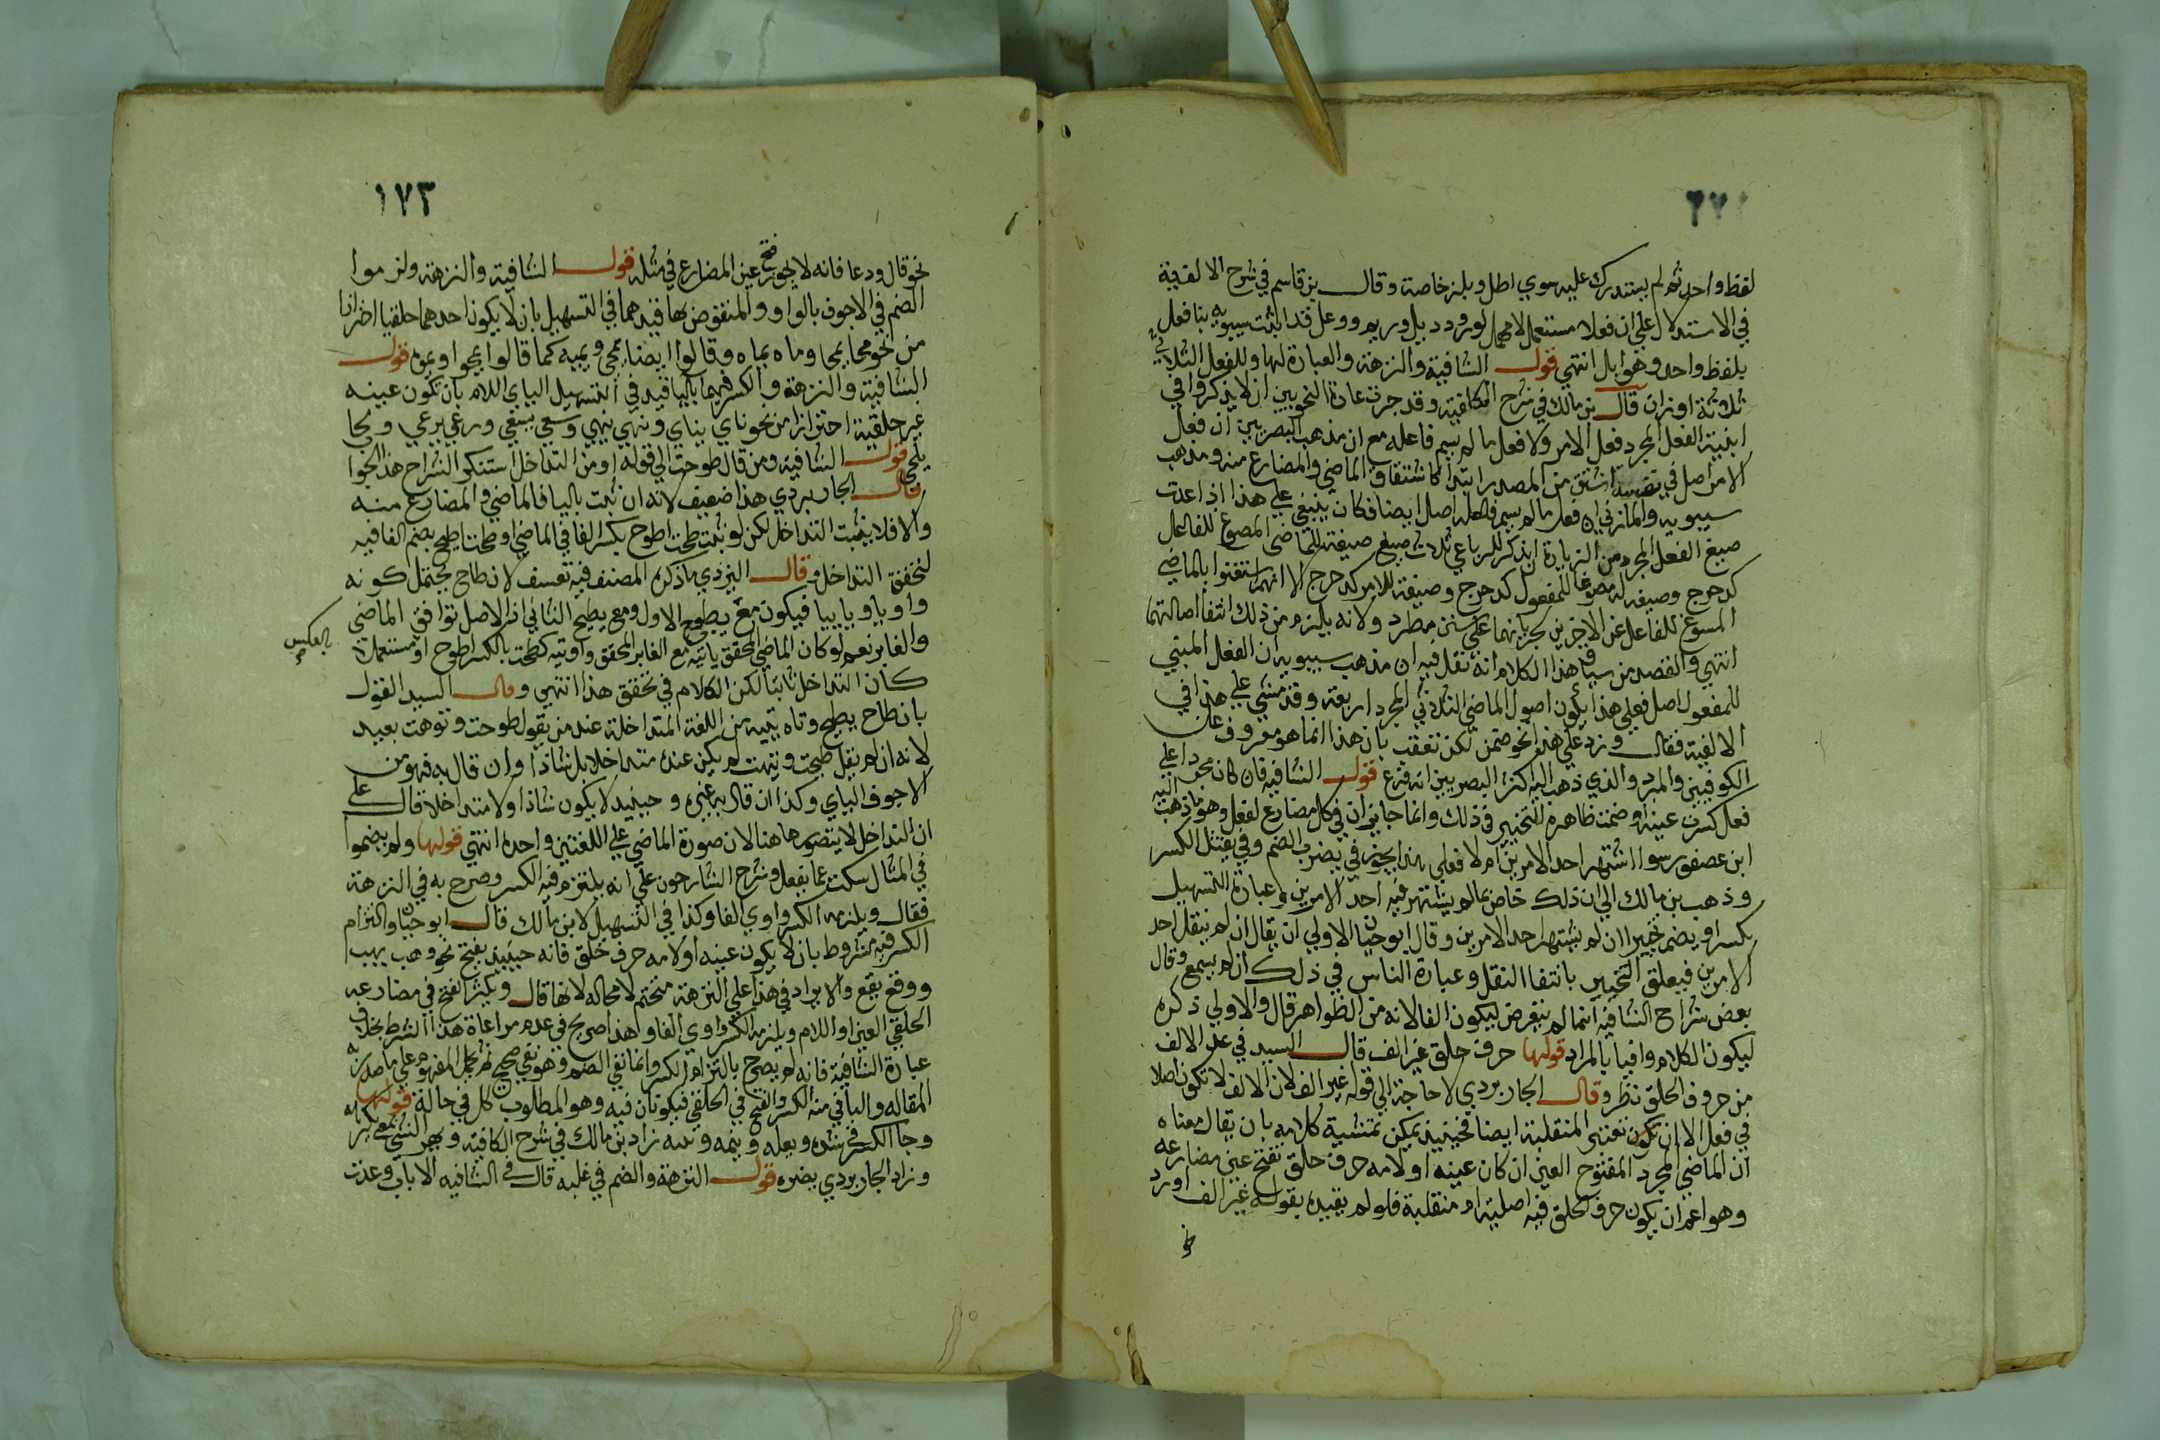 لفظ واحد ثم لم يستدرك عليه سوي اطل وبلز خاصة وقال بن قاسم في شرح الالفية
في الاستدلال علي ان فعلا مستعمل لامهمل لورود دبل وريم ووعل قد اثبت سيبويه بنا فعل
بلفظ واحد وهو ابل انتهي قول الشافية والنزهة والعبارة لها وللفعل الثلاثي
ثلاثة اوزان قال بن مالك في شرح الكافية وقد جرت عادة النحويين ان لا يذكروا في
ابنية الفعل المجرد فعل الامر ولا فعل ما لم يسم فاعله مع ان مذهب البصريين ان فعل
الامر اصل في نفسه اشتق من المصدر ابتدا كاشتقاق الماضي والمضارع منه ومذهب
سيبويه والمازني ان فعل ما لم يسم فاعله اصل ايضا فكان ينبغي علي هذا اذا عدت
صيغ الفعل المجرد من الزيادة ان يذكر للرباعي ثلاث صيغ صيغة للماضي المصوغ للفاعل
كدحرج وصيغة له مصوغا للمفعول كدحرج وصيغة للامر كدحرج الا انهم استغنوا بالماضي
المصوغ للفاعل عن الاخرين لجريانهما علي سنن مطرد ولانه يلزم من ذلك انتفا اصالتهما
انتهي والقصد من سياق هذا الكلام انه نقل فيه ان مذهب سيبويه ان الفعل المبني
للمفعول اصل فعلي هذا يكون اصول الماضي الثلاثي المجرد اربعة وقد مشي علي هذا في
الالفية فقال وزد نحو ضمن لكن تعقب بان هذا انما هو معروف عن
الكوفيين والمبرد والذي ذهب اليه اكثر البصريين انه فرع قول الشافية فان كان مجردا علي
فعل كسرت عينه او ضمت ظاهره التخيير في ذلك وانما جايز ان في كل مضارع لفعل وهو ما ذهب اليه
ابن عصفور سوا اشتهر احد الامرين ام لا فعلي هذا يجوز في يضرب الضم وفي يقتل الكسر
وذهب بن مالك الي ان ذلك خاص بما لم يشتهر فيه احد الامرين وعبارة التسهيل
بكسر او بضم تخييرا ان لم يشتهر احد الامرين وقال ابو حيان الاولي ان يقال ان لم ينقل احد
الامرين فيعلق التخيير بانتفا النقل وعبارة الناس في ذلك ان لم يسمع وقال
بعض شراح الشافية انما لم يتعرض ليكون الفا لانه من الظواهر قال والاولي ذكره
ليكون الكلام وافيا بالمراد قولها حرف حلق غير الف قال السيد في عد الالف
من حروف الحلق نظر وقال الجاربردي لا حاجة الي قوله غير الف لان الالف لا تكون اصلا
في فعل الا ان تكون المنقلبة ايضا فحينيذ يمكن تمشية كلامه بان يقال معناه
ان الماضي المجرد المفتوح العين ان كان عينه او لامه حرف حلق تفتح عين مضارعه
وهو اعم ان يكون حرف الحلق فيه اصلية او منقلبة فلو لم يقيده بقوله غير الف اورد
١٧٣
نحو قال ودعا فانه لا يجوز فتح عين المضارع في مثله قول الشافية والنزهة ولزموا
الضم في الاجوف بالواو والمنقوص بها قيدهما في التسهيل بان لا يكون احدهما حلقيا احترازا
من نحو محا يمحا وماه يماه وقالوا ايضا يمحي ويميه كما قالوا يمحو ويموه قول
الشافية والنزهة والكسر فيهما باليا قيد في التسهيل الياي اللام بان تكون عينه
غير حلقية احترازا من نحو ناي يناي ونهي ينهي وسعي يسعي ورعي يرعي ولحا
يلحي قول الشافية ومن قال طوحت الي قوله او من التداخل استنكر الشراح هذا الجواب
قال الجاربردي هذا ضعيف لانه ان ثبت باليا فالماضي والمضارع منه
والا فلا يثبت التداخل لكن لو ثبت طحت اطوح بكسر الفا في الماضي او طحت اطيح بضم الفا فيه
لتحقق التداخل وقال اليزدي ما ذكره المصنف فيه تعسف لان طاح يحتمل كونه
واويا ويا ييا فيكون مع يطوح الاول ومع يطيح الثاني اذ الاصل توافق الماضي
والغابر نعم لو كان الماضي المحقق يائيه مع الغابر المحقق واويته كطحت بالكسر اطوح او مستعملا
بالعكس
كان التداخل ثابتا لكن الكلام في تحقق هذا انتهي وقال السيد القول
بان طاح يطيح وتاه يتيه من اللغة المتداخلة عند من يقول طوحت وتوهت بعيد
لانه ان لم يقل طيحت وتيهت لم يكن عنده متداخلا بل شاذا وان قال به فهو من
الاجوف الياي وكذا ان قال به غيره وحينيذ لا يكون شاذا ولا متداخلا قال علي
ان التداخل لا يتصور هاهنا لان صورة الماضي علي اللغتين واحدة انتهي قولها ولم يضموا
في المثال سكت عما يفعل وشرح الشارحون علي انه يلتزم فيه الكسر وصرح به في النزهة
فقال ويلزمه الكسر واوي الفا وكذا في التسهيل لابن مالك قال ابو حيان والتزام
الكسر فيه مشروط بان لا يكون عينه او لامه حرف حلق فانه حينيذ يفتح نحو وهب يهب
ووقع يقع والايراد في هذا علي النزهة متحتم لا محالة لانها قال ويكثر الفتح في مضارعه
الحلقي العين او اللام ويلزمه الكسر واوي الفا وهذا صريح في عدم مراعاة هذا الشرط بخلاف
عبارة الشافية فانه لم يصرح بالتزام الكسر وانما نفي الضم وهو نفي صحيح ثم يحمل المفهوم علي ما صدر به
المقاله والباقي منه الكسر والفتح في الحلقي فيكونان فيه وهو المطلوب كل في حاله قولها
وجا الكسر في يشده ويعله وينمه ويبته زاد بن مالك في شرح الكافية وهر الشي يهره
وزاد الجاربردي يضره قول النزهة والضم في غلبه قال في الشافية الا باب وعدت